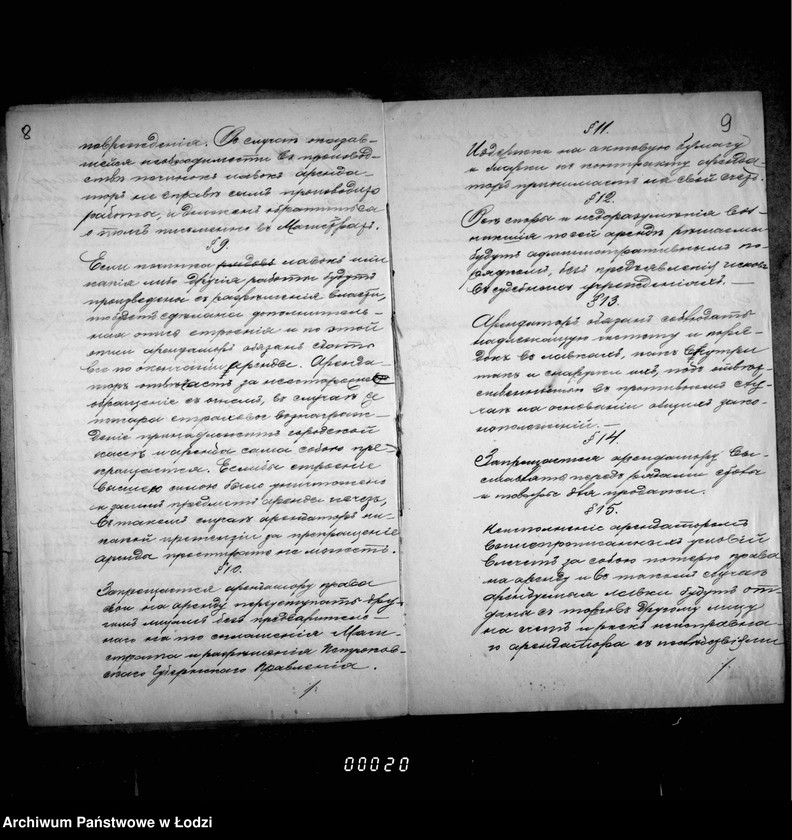 8
повреждения. Въ случаѣ оказав-
шейся необходимости въ производ-
ствѣ починокъ лавокъ аренда-
торъ не въ правѣ самъ производить
работы, а долженъ обратиться
о томъ письменно въ Магистратъ.
§ 9.
Если починка рядовъ лавокъ или
какія либо другія работы будутъ
произведены съ разрѣшенія власти,
то будетъ сдѣлана дополнитель-
ная опись строенія и по этой
описи арендаторъ обязанъ сдать
все по окончаніи аренды. Аренда-
торъ отвѣчаетъ за неосторожное
обращеніе съ огнемъ, въ случаѣ же
пожара страховое вознаграж-
деніе принадлежитъ городской
кассѣ и аренда сама собою пре-
кращается. Если бы строеніе
высшею силою было уничтожено
и засимъ предметъ аренды исчезъ,
въ такомъ случаѣ арендаторъ ни-
какой претензіи за прекращеніе
аренды простирать не можетъ.
§ 10.
Запрещается арендатору права
свои на аренду переуступать дру-
гимъ лицамъ безъ предваритель-
наго на то соглашенія Маги-
страта и разрѣшенія Петроков-
скаго Губернскаго Правленія.
9
§ 11.
Издержки на актовую бумагу
и марки къ контракту аренда-
торъ принимаетъ на свой счетъ.
§ 12.
Всѣ споры и недоразумѣнія воз-
никшія по сей арендѣ рѣшаемы
будутъ административнымъ по-
рядкомъ, безъ предъявленія исковъ
въ судебныхъ учрежденіяхъ. —
§ 13.
Арендаторъ обязанъ соблюдать
надлежащую чистоту и поря-
докъ въ лавкахъ, какъ внутри
такъ и снаружи ихъ, подъ отвѣт-
ственностью въ противномъ слу-
чаѣ на основаніи общихъ зако-
ноположеній. —
§ 14.
Запрещается арендатору вы-
ставлять передъ рядами столы
и товары для продажи.
§ 15.
Неисполненіе арендаторомъ
вышепрописанныхъ условій
влечетъ за собою потерю права
на аренду и въ такомъ случаѣ
арендуемыя лавки будутъ от-
даны съ торговъ другому лицу
на счетъ и рискъ неисправна-
го арендатора съ послѣдствіями
00020
Archiwum Państwowe w Łodzi